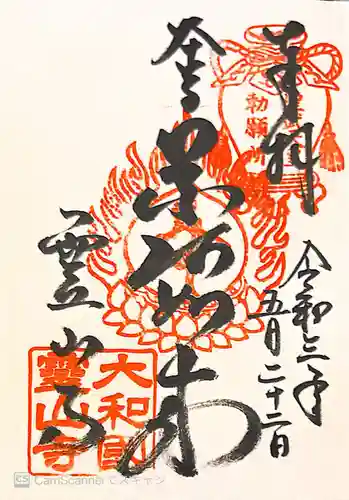 奉拝
令和三年
五月二十二日
勅願所
薬師如来
霊山寺
大和國
靈山寺
CS CamScanner でスキャン